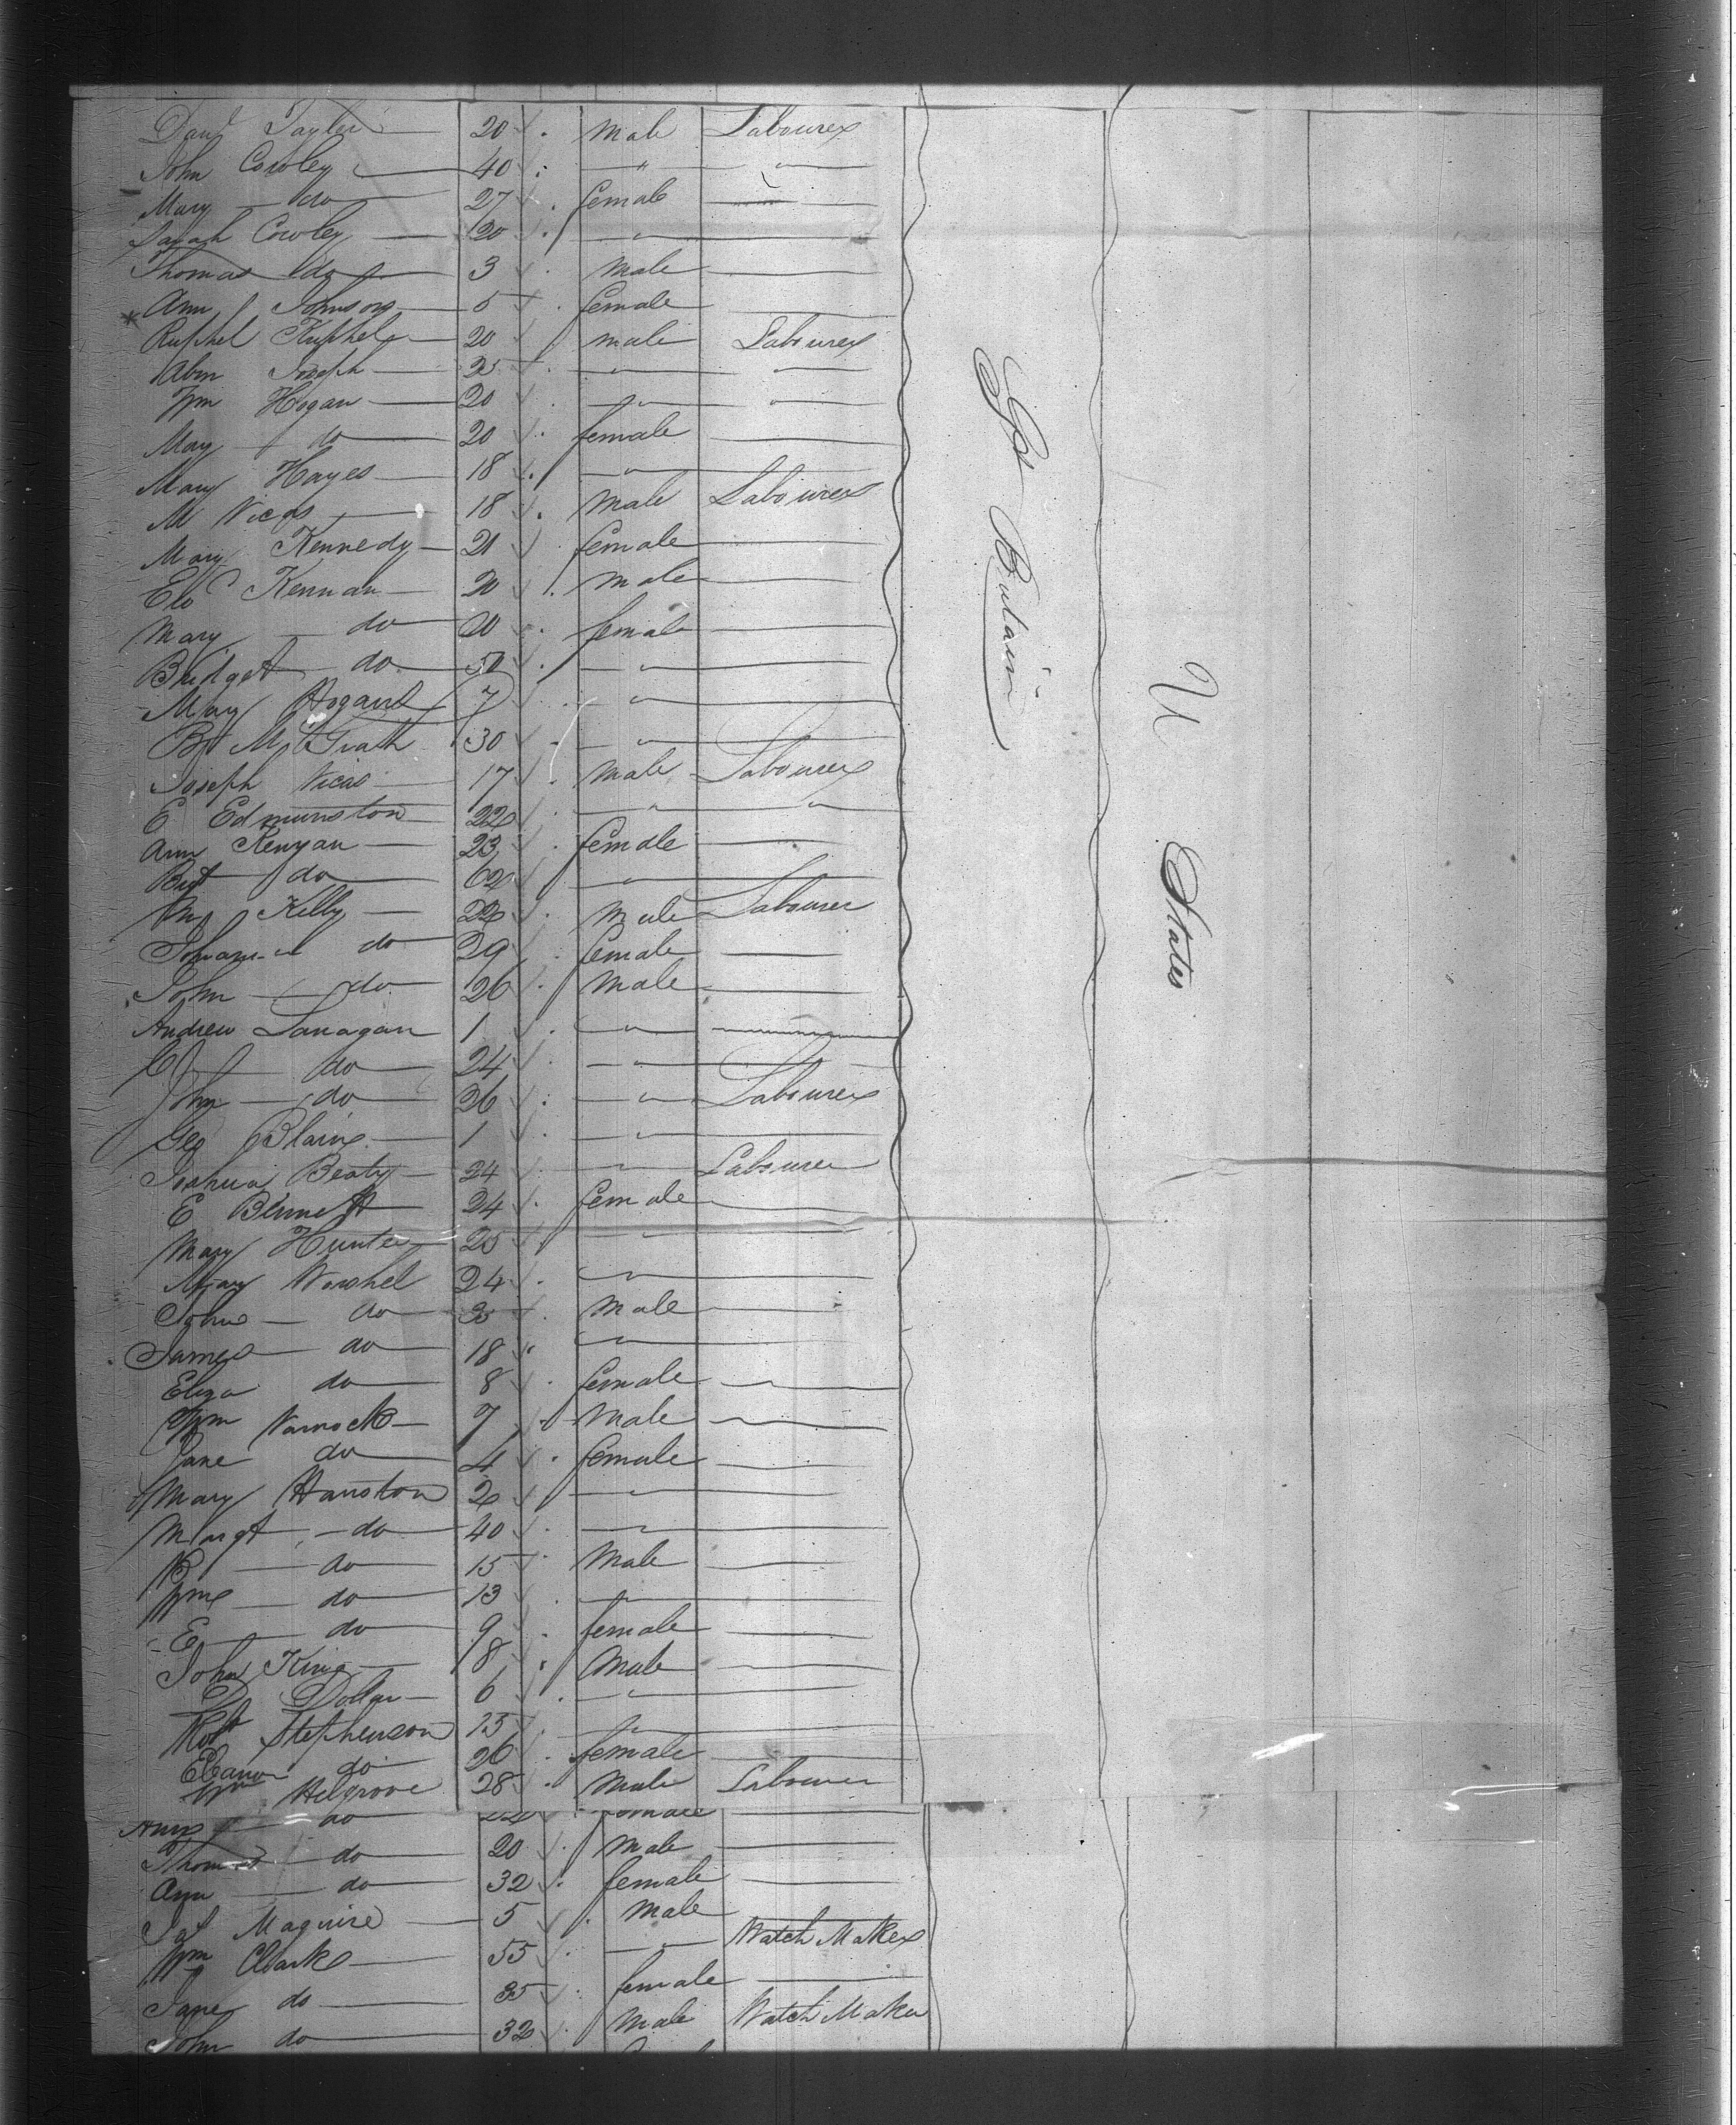 Danl Tayler 20 male Labourer
John Cowley 40 " "
Mary do 27 female
Sarah Cowley 20 "
Thomas do 3 male
Ann Johnson 5 female
Ruphel Ruphel 20 male Labourer
Abm Joseph 25 " "
Wm Hogan 20 " "
Mary do 20 female
Mary Hayes 18 "
M Vicas 18 male Labourer
Mary Kennedy 21 female
Kennan 20 male
Mary do 20 female
Bridget do 50 "
Mary Hogans 7 "
Bt McGrath 30 "
Joseph Vicas 17 male Labourer
E Edmunston 22 " "
Ann Kenyan 23 female
Bgt do 62 "
Kelly 22 male Labourer
do 29 female
John do 26 male
Andrew Lanagan 1 "
do 24 "
John do 26 " Labourer
Geo Blain 1 "
Joshua Beaty 24 " Labourer
E Bennett 24 female
Mary Hunter 25 "
Mary 24 "
John do 35 male
James do 18 "
Eliza do 8 female
Wm Warnock 7 male
Jane do 4 female
Mary Hanston 2 "
Margt do 40 "
R do 15 male
Wm do 13 "
E do 9 female
John King 8 male
Dollar 6 "
Robt Stephenson 13 "
Eleanor do 26 female
Wm Helgrove 28 male Labourer
Amy do 22 female
Thomas do 20 male
Ann do 32 female
Jas Maguire 5 male
Wm Clarke 55 " Watch Maker
Jane do 35 female
John do 32 male Watch Maker
Gt Britain
U States